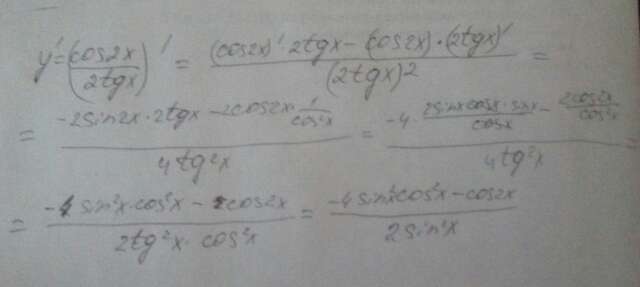 y' = (cos2x / 2tgx)' = ((cos2x)' · 2tgx - (cos2x) · (2tgx)') / (2tgx)² =
= (-2sin2x · 2tgx - 2cos2x · 1/cos²x) / 4tg²x = (-4 · 2sinxcosx · sinx/cosx - 2cos2x/cos²x) / 4tg²x =
= (-4sin²x · cos²x - cos2x) / 2tg²x · cos²x = (-4sin²xcos²x - cos2x) / 2sin²x